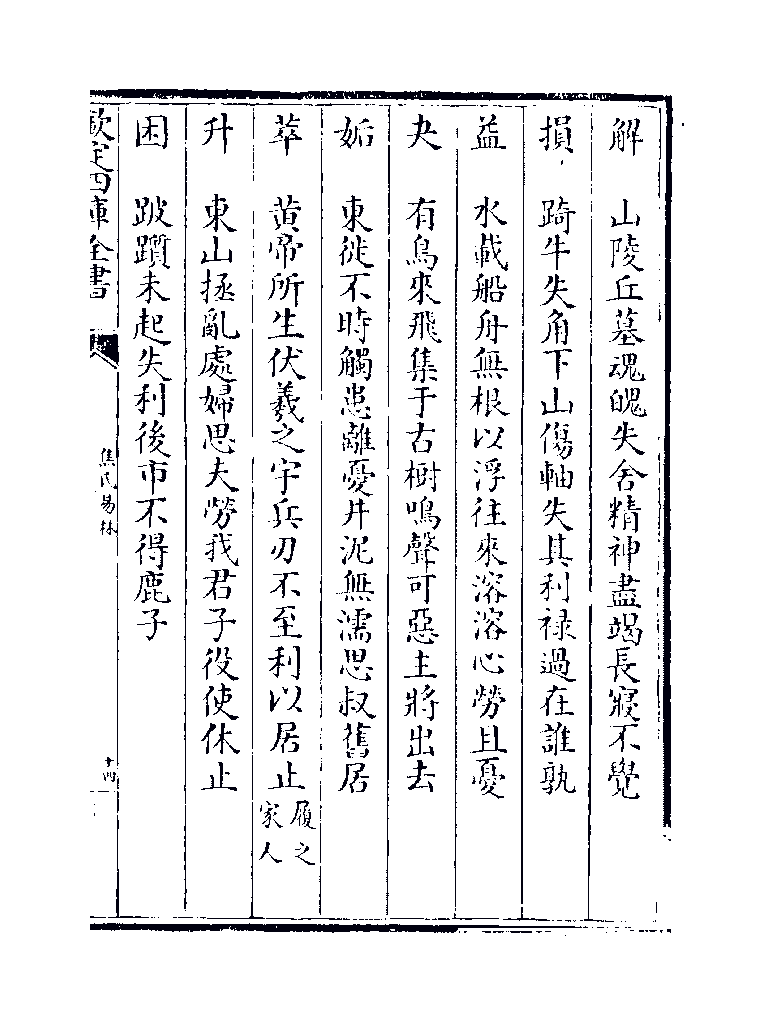 解　山陵丘墓魂魄失舍精神盡竭長寢不覺
損　踦牛失角下山傷軸失其利祿過在誰孰
益　水載船舟無根以浮往來溶溶心勞且憂
夬　有鳥來飛集于古樹鳴聲可惡主將出去
姤　東徙不時觸患離憂井泥無濡思叔舊居
萃　黄帝所生伏羲之宇兵刃不至利以居止履之家人
升　東山拯亂處婦思夫勞我君子役使休止
困　跛躓未起失利後市不得鹿子
欽定四庫全書
焦氏易林
十四